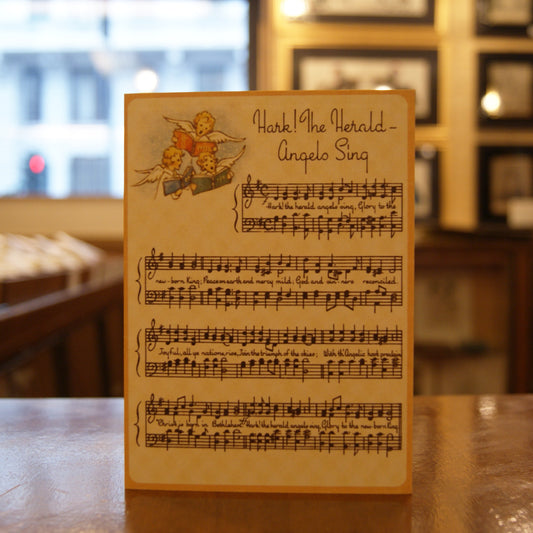 Hark! The Herald-
Angels Sing
Hark! the herald angels sing, Glory to the
new-born King; Peace on earth and mercy mild; God and sin-ners reconciled.
Joyful, all ye nations, rise, Join the triumph of the skies; With th' Angelic host proclaim
Christ is born in Bethlehem. Hark! the herald angels sing, Glory to the new-born King.